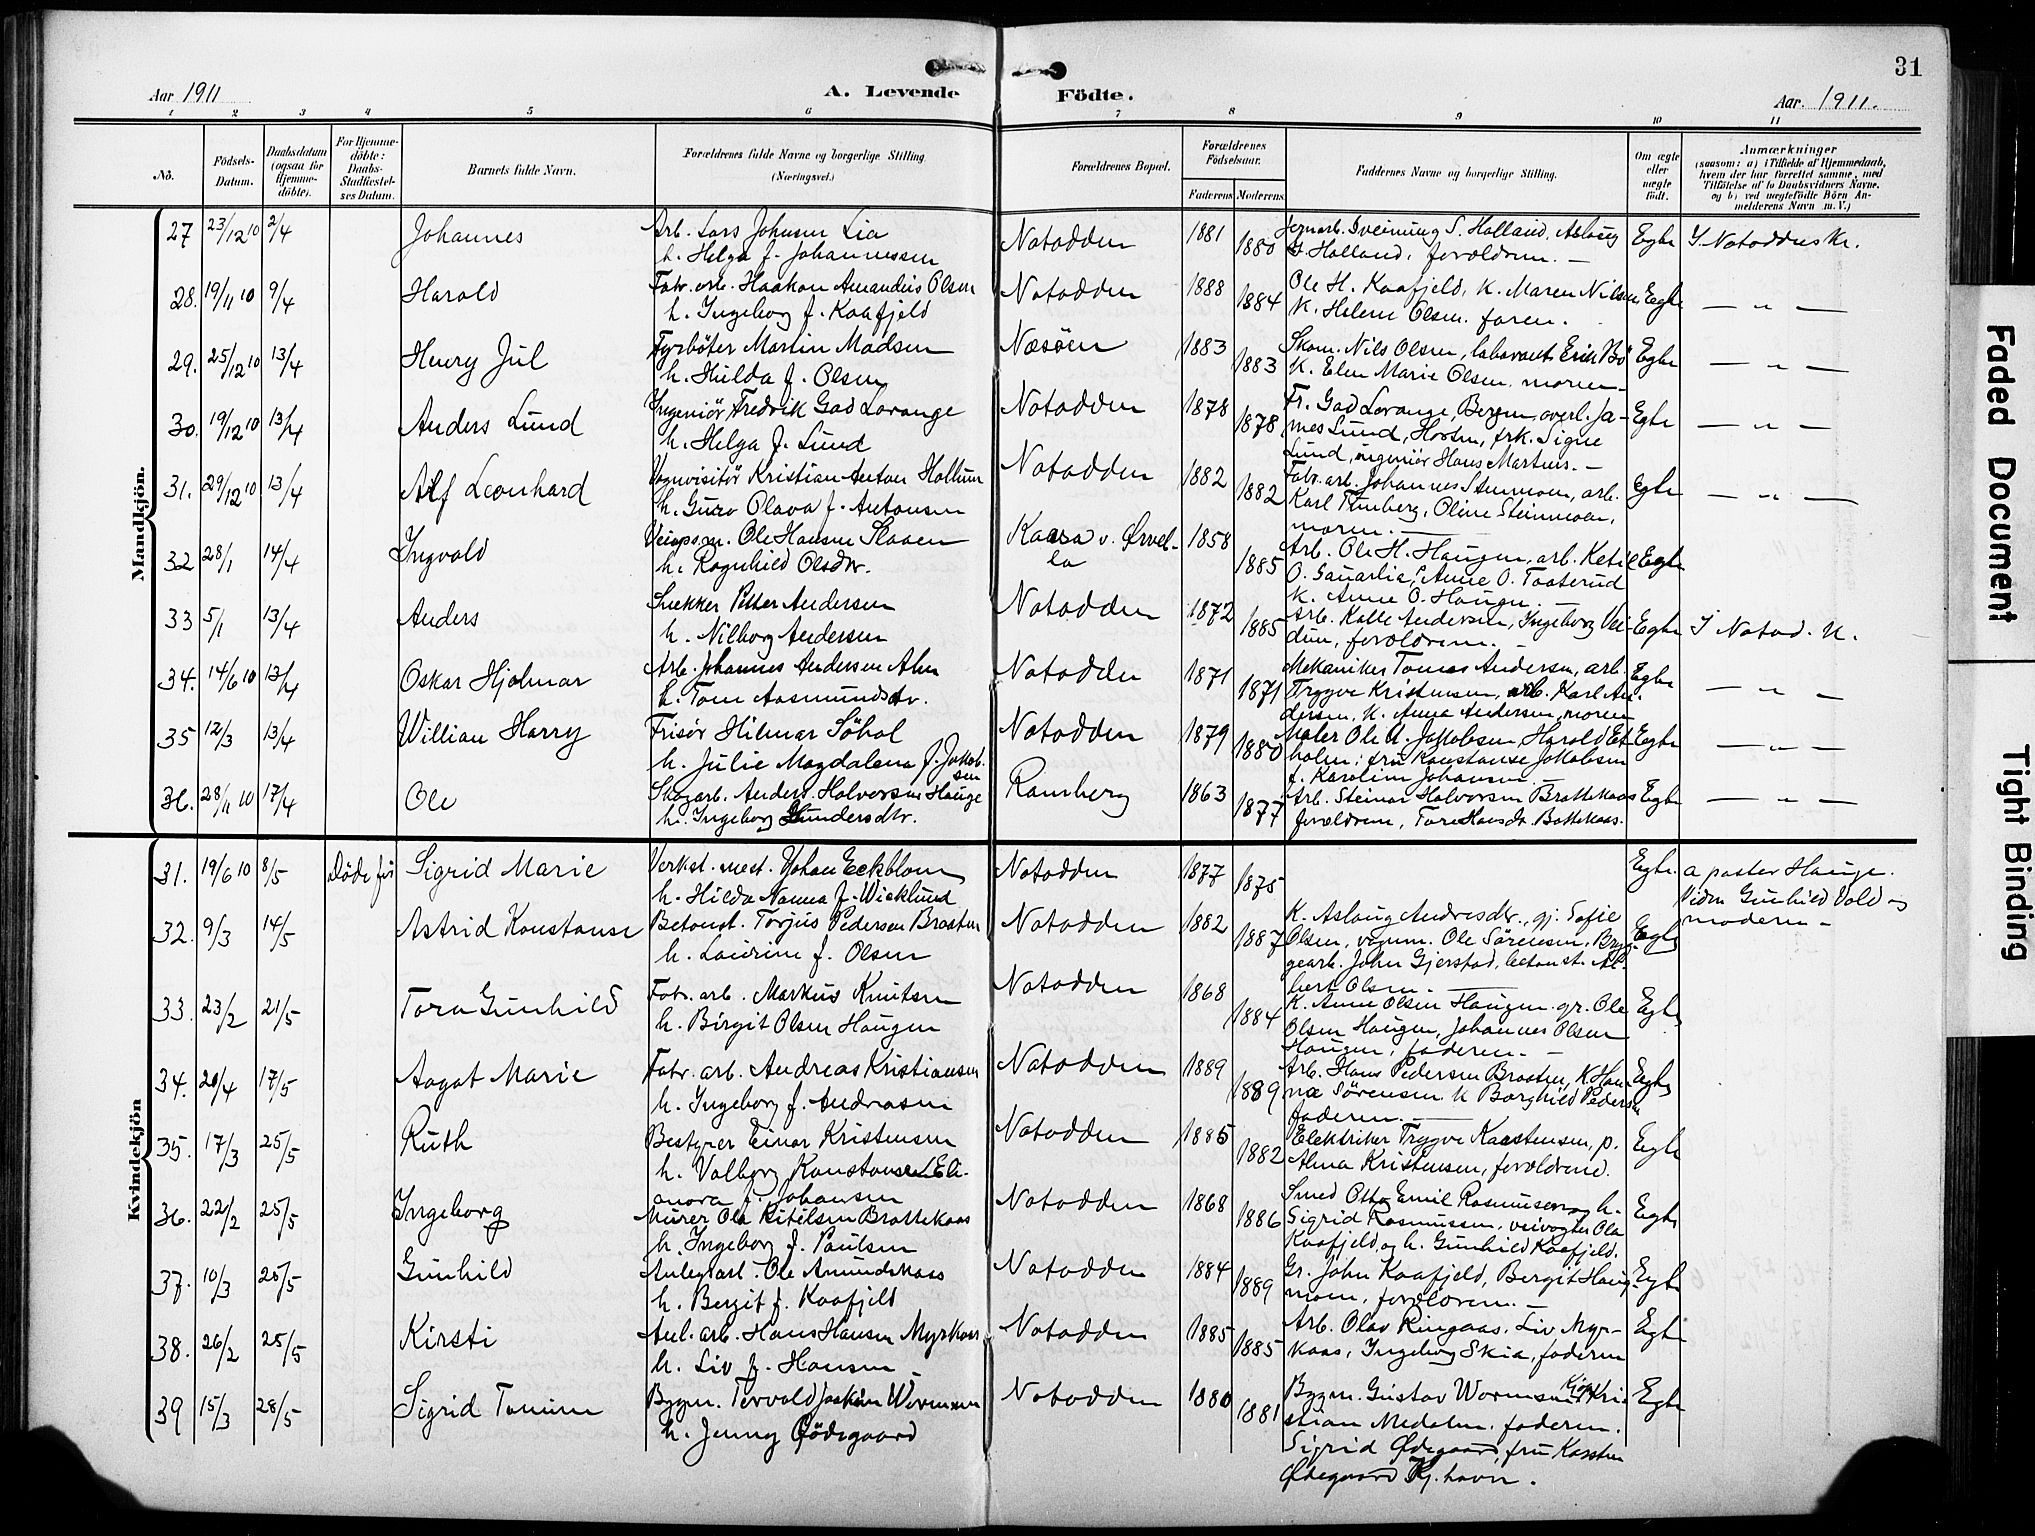 31
Aar 1911
A. Levende
Födte.
Aar. 1911.
1 2 3 4 5 6 7 8 9 10 11
No.
Födsels-Datum.
Daabsdatum (ogsaa for Hjemme-döbte).
For Hjemme-döbte: Daabs-Stadfæstel-ses Datum.
Barnets fulde Navn.
Forældrenes fulde Navne og borgerlige Stilling
(Næringsvei.)
Forældrenes Bopæl.
Forældrenes Födselsaar.
Faderens
Moderens
Faddernes Navne og borgerlige Stilling.
Om ægte eller uægte födt.
Anmærkninger
(saasom: a) i Tilfælde af Hjemmedaab, hvem der har forrettet samme, med Tilföielse af to Daabsvidners Navne. og b) ved uægtefödte Börn An-melderens Navn m. V.)
Mandkjön.
27 23/12 10 2/4 Johannes
Arb. Lars Johnsen Lia
h. Helga f. Johannessen
Notodden 1881 1880
Jernarb. Sveinung S. Holland, Aslaug
S. Holland, forældrene. —
Egte I Notoddens K.
28. 19/11 10 9/4 Harald
Fabr. arb. Haakon Amandus Olsen
h. Ingeborg f. Kaafjeld
Notodden 1888 1884
Ole H. Kaafjeld, K. Maren Nilsen
K. Helene Olsen. faren.
Egte — " —
29. 25/12 10 13/4 Henry Jul
Fyrböter Martin Madsen
h. Hulda f. Olsen
Næsöen 1883 1883
Skom. Nils Olsen, laborant Erik Bö
K. Elen Marie Olsen, moren —
Egte — " —
30. 19/12 10 13/4 Anders Lund
Ingeniör Fredrik Gad Lorange
h. Helga f. Lund
Notodden 1878 1878
Fr. Gad Lorange, Bergen, overl. Ja-
mes Lund, Horten, frk. Signe
Lund, ingeniör Hans Martens. —
Egte — " —
31. 29/12 10 13/4 Alf Leonhard
Vognvisitör Kristian Anton Hollum
h. Guro Olava f. Antonsen
Notodden 1882 1882
Fabr. arb. Johannes Steinmoen, arb.
Karl Tinberg, Oline Steinmoen,
moren —
Egte — " —
32 28/1 14/4 Ingvald
Veiops.m. Ole Hansen Slaaen
h. Ragnhild Olsdtr.
Kaasa v. Ørvel-
la 1858 1885
Arb. Ole H. Haugen, arb. Ketil
O. Sauarlia, Anne O. Taaterud
K. Anne O. Haugen. —
Egte
33 5/1 13/4 Anders
Snekker Petter Andersen
h. Nilborg Andersen
Notodden 1872 1885
Arb. Kalle Andersen, Ingeborg Vei-
dun, forældrene. —
Egte I Notod. K.
34. 14/6 10 13/4 Oskar Hjalmar
Arb. Johannes Andersen Alm
h. Tone Aasmundsdtr.
Notodden 1871 1871
Mekaniker Tomas Andersen, arb.
Trygve Kristensen, arb. Karl An-
dersen, K. Anna Andersen, moren
Egte — " —
35 12/3 13/4 William Harry
Frisör Hilmar Söhol
h. Julie Magdalena f. Jakob-
sen
Notodden 1879 1880
Maler Ole A. Jakobsen, Harald Et-
holm; fru Konstanse Jakobsen
f. Karoline Johansen
Egte — " —
36. 28/11 10 17/4 Ole
Skogarb. Anders Halvorsen Hauge
h. Ingeborg Gundersdtr.
Ramberg 1863 1877
Arb. Steinar Halvorsen Brattekaas
forældrene, Tore Hansdr. Battekaas.
Egte — " —
Kvindekjön
31. 19/6 10 8/5 Döde för Sigrid Marie
Verkst. mest. Johan Eckblom
h. Hilda Nanna f. Wicklund
Notodden 1877 1875
Egte. a pastor Hauge.
Viden Gunhild Vold og
moderen —
32. 9/3 14/5 Astrid Konstanse
Betonst. Torjus Pedersen Braaten
h. Laurine f. Olsen
Notodden 1882 1887
K. Aslaug Andresdtr., gj. Sofie
Olsen, vognm. Ole Sörensen, Bryg-
gearb. John Gjerstad, betonst. Al-
bert Olsen. —
Egte
33. 23/2 21/5 Tora Gunhild
Fabr. arb. Markus Knutsen
h. Birgit Olsen Haugen
Notodden 1868 1884
K. Anne Olsen Haugen, gr. Ole
Olsen Haugen, Johannes Olsen
Haugen, faderen. —
Egte
34. 20/4 17/5 Aagot Marie
Fabr. arb. Andreas Kristiansen
h. Ingeborg f. Andreasen
Notodden 1889 1889
Arb. Hans Pedersen Braaten, K. Han-
na Sörensen K Borghild Pedersen
faderen. —
Egte
35. 17/3 25/5 Ruth
Bestyrer Einar Kristensen
h. Valborg Konstanse Ele-
onora f. Johansen
Notodden 1885 1882
Elektriker Trygve Kaastensen, p.
Alma Kristensen, forældrene.
Egte
36. 22/2 25/5 Ingeborg
Murer Ola Kitilsen Brattekaas
h. Ingeborg f. Paulsen
Notodden 1868 1886
Smed Otto Emil Rasmussen og h.
Sigrid Rasmussen, veivogter Ola
Kaafjeld, og h. Gunhild Kaafjeld.
Egte
37. 10/3 25/5 Gunhild
Anlegsarb. Ole Amundskaas
h. Bergit f. Kaafjeld
Notodden 1884 1889
Gr. John Kaafjeld, Bergit Haug-
moen, forældrene. —
Egte
38. 26/2 25/5 Kirsti
Anl. arb. Hans Hansen Myrkaas
h. Liv f. Hansen
Notodden 1885 1885
Arb. Olav Ringaas, Liv Myr-
kaas, Ingeborg Skia, faderen
Egte
39 15/3 28/5 Sigrid Tomine
Bygm. Torvald Joakim Wormsen
h. Jenny Ödegaard
Notodden 1880 1881
Bygm. Gustav Wormsen, Kjøpm. Kri-
stian Medalen. faderen.
Sigrid Ødegaard, fru Karsten
Ødegaard Kj.havn.
Egte
Faded Document
Tight Binding